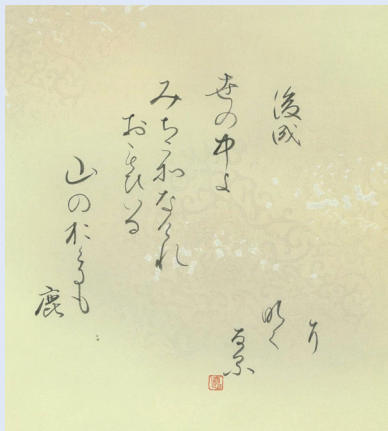 俊成
世の中よ
みちこそなけれ
おもひいる
山のおくにも
鹿
そ
鳴く
なる